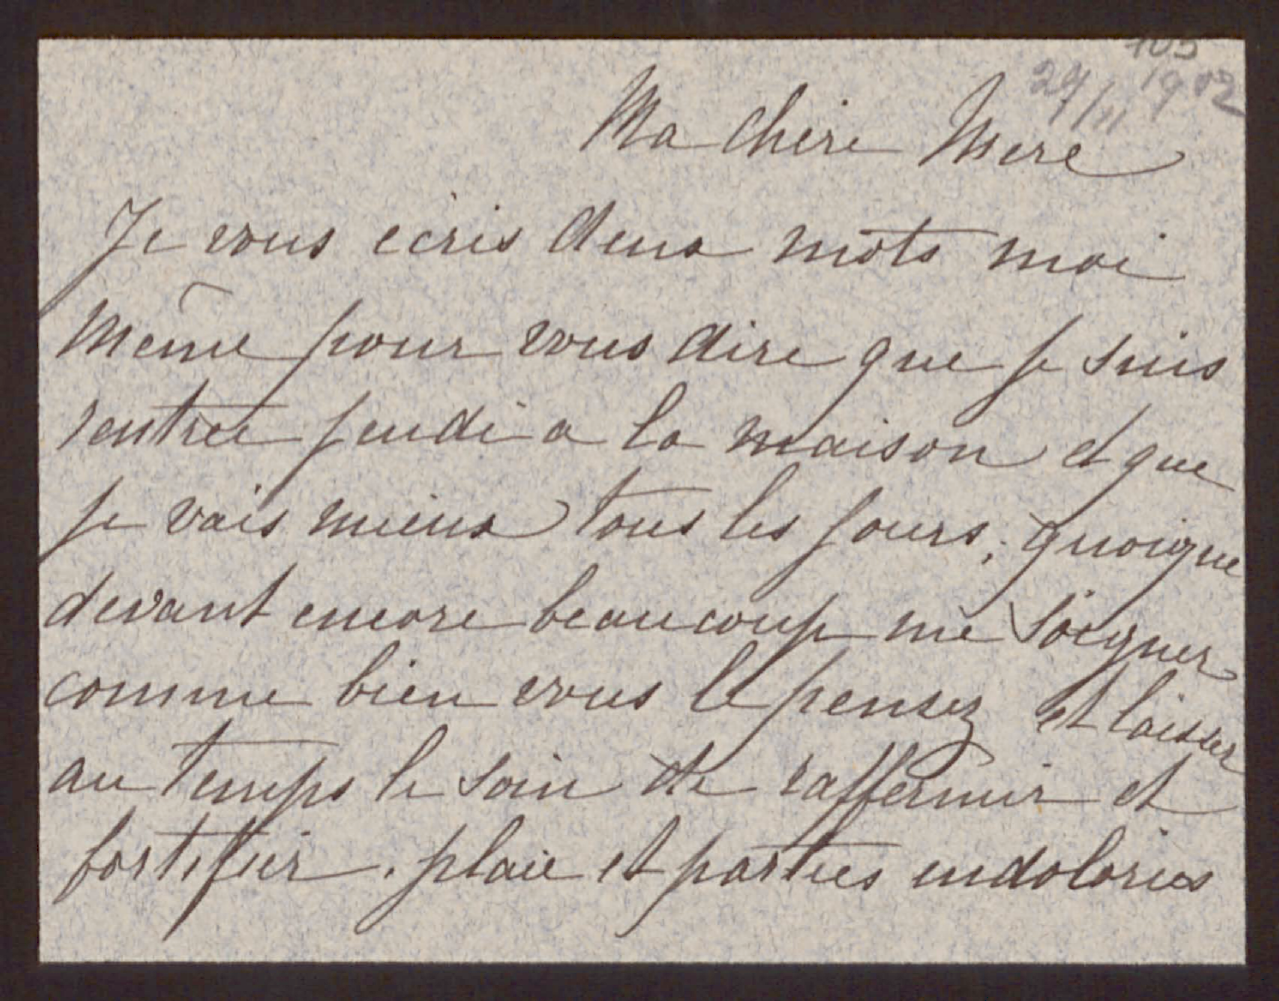 105
29/11 1902
Ma chère Mère
Je vous ecris deux mots moi
même pour vous dire que je suis
rentrée jeudi a la maison et que
je vais mieux tous les jours, quoique
devant encore beaucoup me soigner
comme bien vous le pensez et laisser
au temps le soin de raffermir et
fortifier. plaie et parties endolories